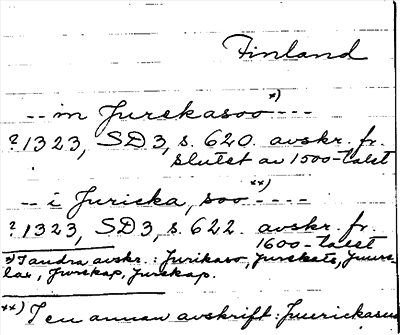 Finland
-- in Jurekasoo*) ---
? 1323, SD3, s. 620. avskr. fr.
slutet av 1500-talet
-- i Juricka, soo**) ----
? 1323, SD3, s. 622. avskr. fr.
1600-talet
*) I andra avskr.: Jurikaso, Jurskate, Juurs-
lax, Jurskap, Jurskap.
**) I en annan avskrift: Juurickasuu